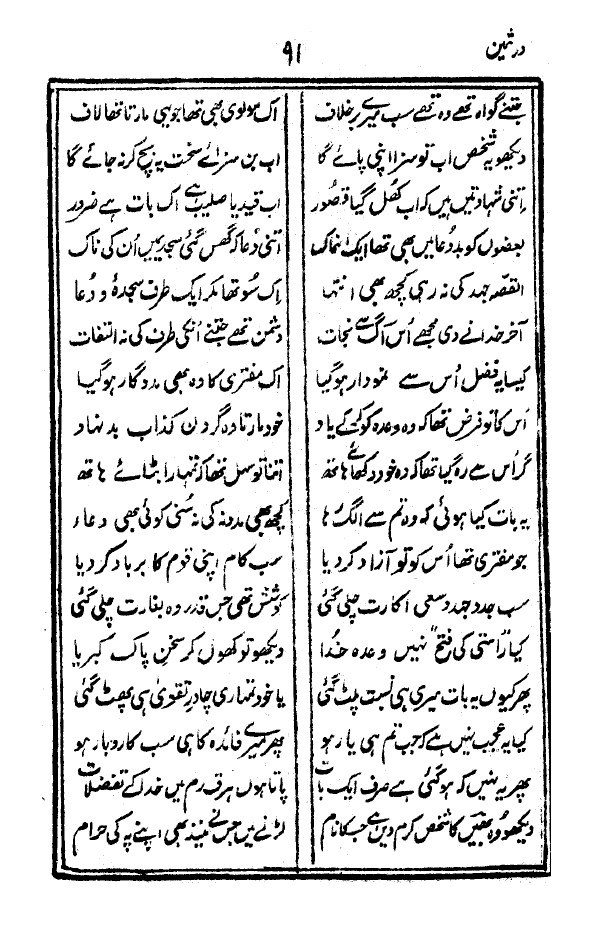 درثمین
۹۱
جتنے گواہ تھے وہ تھے سب میرے برخلاف
اک مولوی بھی تھا جو یہی مارتا تھا لاف
دیکھو یہ شخص اب تو سزا اپنی پائے گا
اب بن سزائے سخت یہ بچ کر نہ جائے گا
اتنی شہادتیں ہیں کہ اب کھل گیا قصور
اب قید یا صلیب ہے اک بات ہے ضرور
بعضوں کو بددعا میں بھی تھا ایک انہماک
اتنی دعا کہ گھس گئی سجدے میں اُن کی ناک
القصہ جہد کی نہ رہی کچھ بھی انتہا
اِک سُو تھا مکر ایک طرف سجدہ و دُعا
آخر خدا نے دی مجھے اُس آگ سے نجات
دشمن تھے جتنے اُنکی طرف کی نہ التفات
کیسا یہ فضل اُس سے نمودار ہوگیا
اک مفتری کا وہ بھی مددگار ہوگیا
اس کا تو فرض تھا کہ وہ وعدہ کو کرکے یاد
خود مارتا وہ گردن کذاب بدنہاد
گر اُس سے رہ گیا تھا کہ وہ خود دکھائے ہاتھ
اتنا تو سہل تھا کہ تمہارا بٹائے ہاتھ
یہ بات کیا ہوئی کہ وہ تم سے الگ رہا
کچھ بھی مدد نہ کی نہ سُنی کوئی بھی دعاء
جو مفتری تھا اُس کو تو آزاد کر دیا
سب کام اپنی قوم کا برباد کر دیا
سب جدوجہد و سعی اکارت چلی گئی
کوشش تھی جس قدر وہ بغارت چلی گئی
کیا "راستی کی فتح" نہیں وعدہ خُدا
دیکھو تو کھول کر سخن پاک کبریا
پھر کیوں یہ بات میری ہی نسبت پلٹ گئی
یا خود تمہاری چادر تقویٰ ہی پھٹ گئی
کیا یہ عجب نہیں ہے کہ جب تم ہی یار ہو
پھر میرے فائدہ کا ہی سب کاروبار ہو
پھر یہ نہیں کہ ہوگئی ہے صرف ایک بات
پاتا ہوں ہر قدم میں خدا کے تفضلات
دیکھو وہ بھیں کا شخص کرم دین ہے جس کا نام
لڑنے میں جس نے نیند بھی اپنے پہ کی حرام